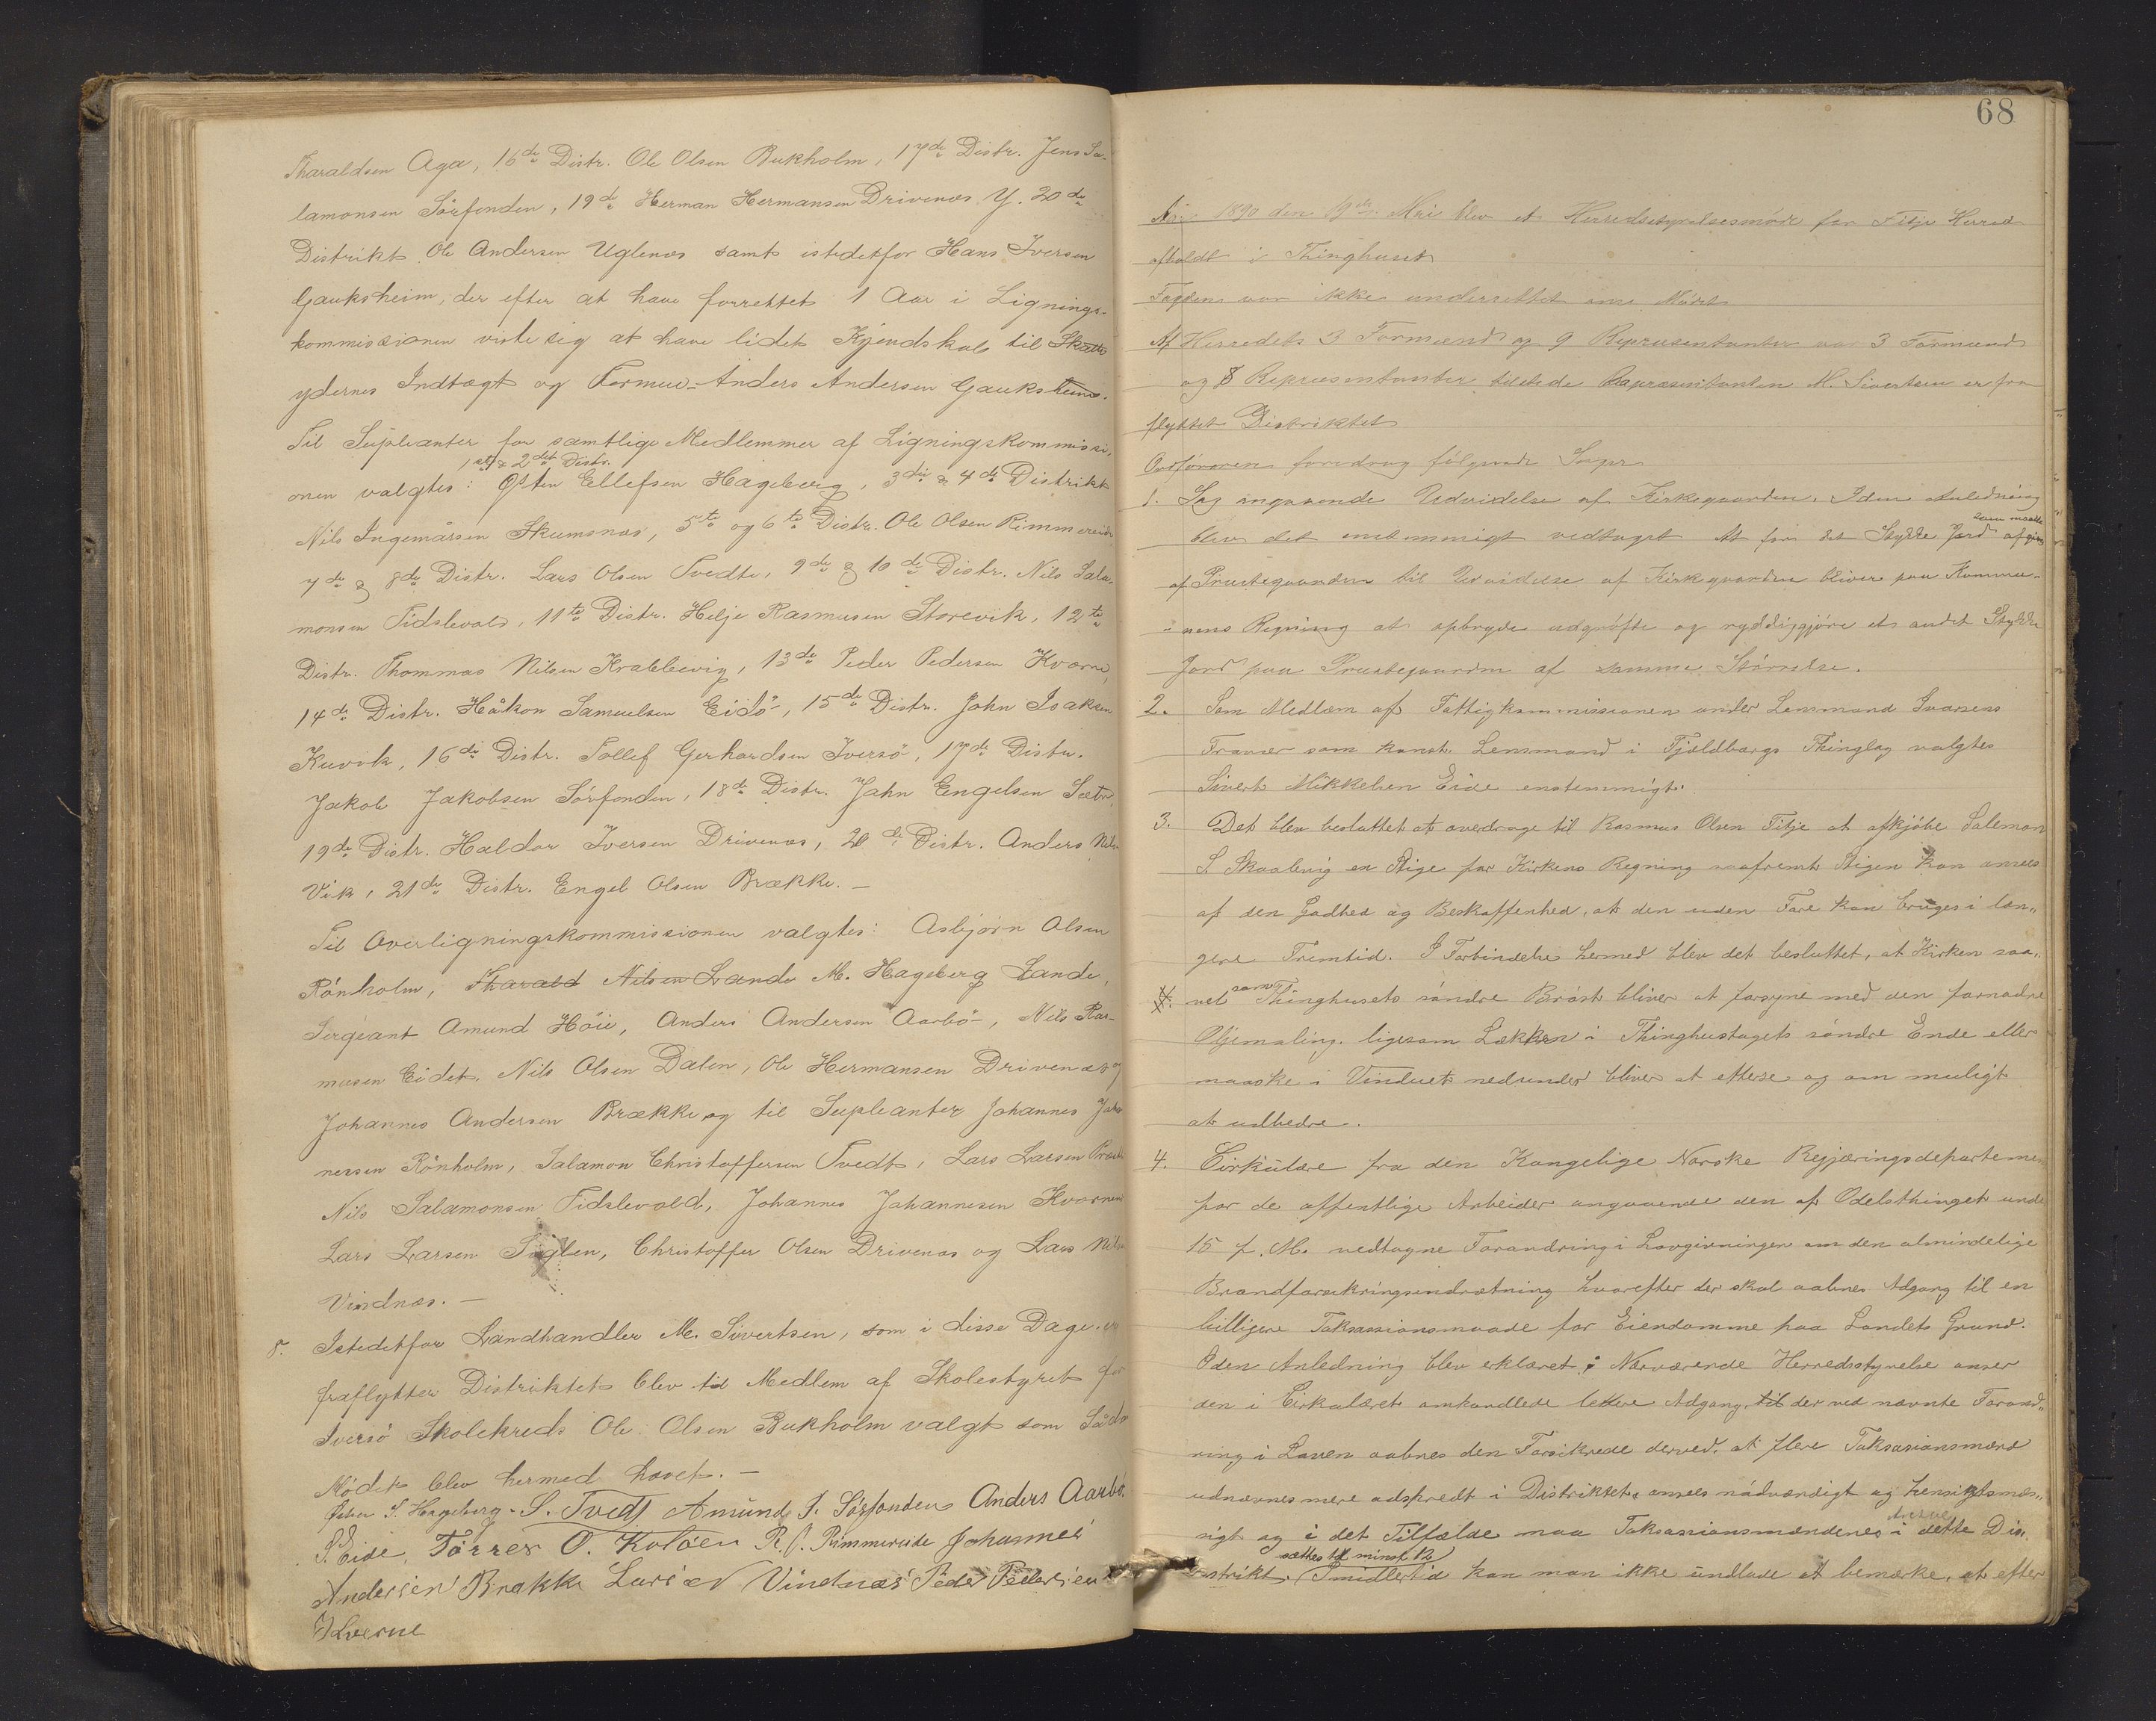 Tharaldsen Aga, 16de Distr. Ole Olsen Bukholm, 17de Distr. Jens Sa-
lamonsen Sörfonden, 19de Herman Hermansen Drivenes Y. 20de
Distrikt Ole Andersen Uglenes samt istedetfor Hans Iversen
Gauksheim, der efter at have forrettet 1 Aar i Lignings-
kommissionen viste sig at have lidet Kjendskab til Skatte
ydernes Indtægt og Formue - Anders Andersen Gauksheim.
Til Supleanter for samtlige Medlemmer af Ligningskommissi-
1ste & 2det Distr.
onen valgtes: Østen Ellefsen Hageberg, 3die & 4de Distrikt
Nils Ingemårsen Skumsnes, 5te og 6te Distr. Ole Olsen Rimmereide
7de & 8de Distr. Lars Olsen Tvedte, 9de & 10de Distr. Nils Sala-
monsen Tidslevold, 11te Distr. Helje Rasmusen Storevik, 12te
Distr. Thommas Nilsen Krabbevig, 13de Peder Pedersen Kvorne,
14de Distr. Håkon Samuelsen Eidö, 15de Distr. John Isaksen
Kuvik, 16de Distr. Tollef Gerhardsen Iversö, 17de Distr.
Jakob Jakobsen Sörfonden, 18de Distr. Jahn Engelsen Sætr
19de Distr. Haldor Iversen Drivenes, 20de Distr. Anders Nils
Vik, 21de Distr. Engel Olsen Brække. —
Til Overligningskommissionen valgtes: Asbjörn Olsen
Rönholm, Tharald Nilsen Lande M. Hageberg Lande,
Sergeant Amund Höie, Anders Andersen Aarbö, Nils Ras-
musen Eidet, Nils Olsen Dalen, Ole Hermansen Drivenes og
Johannes Andersen Brække og til Supleanter Johannes Joha
nessen Rönholm, Salamon Christoffersen Tvedt, Lars Larsen
Nils Salamonsen Tidslevold, Johannes Johannesen Kvornen
Lars Larsen Teglen, Christoffer Olsen Drivenes og Lars Nils
Vindnes. —
8. Istedetfor Landhandler M. Sivertsen, som i disse Dage er
fraflyttet Distriktet blev til Medlem af Skolestyret for
Iversö Skolekreds Ole Olsen Bukholm valgt som Sådan
Mödet blev hermed hævet. —
Östen S. Hageberg - S. Tvedt Amund J. Sörfonden Anders Aarbö
S. Eide, Törres O. Kolöen R. O. Rimmereide Johannes
Andersen Brækk Lars N Vindnæs Peder Pedersen
Kverne
68
Aar 1890 den 19de Mai blev et Herredsstyrelsesmöde for Fitje Herred
afholdt i Thinghuset
Fogden var ikke underrettet om Mödet
Af Herredets 3 Formænd og 9 Repræsentanter var 3 Formænd
og 8 Repræsentanter tilstede Repræsentanten M. Sivertsen er fra
flyttet Distriktet
Ordföreren foredrog fölgende Sager
1. Sag angaaende Udvidelse af Kirkegaarden. I den Anledning
som maatte
blev det enstemmigt vedtaget At for det Stykke Jord afgives
af Præstegaarden til Udvidelse af Kirkegaarden bliver paa Kommu-
nens Regning at opbryde udgröfte og ryddiggjöre et andet Stykke
Jord paa Præstegaarden af samme Störrelse.
2. Som Medlem af Fattigkommissionen under Lensmand Ivarsens
Fravær som konst. Lensmand i Fjeldbergs Thinglag valgtes
Sivert Mikkelsen Eide enstemmigt.
3. Det blev besluttet at overdrage til Rasmus Olsen Fitje at afkjöbe Salemon
S. Skaalevig en Stige for Kirkens Regning saafremt Stigen kan ansees
af den Godhed og Beskaffenhed, at den uden Fare kan bruges i læn„
gere Fremtid. I Forbindelse hermed blev det besluttet, at Kirken saa„
vel som Thinghusets söndre Bröst bliver at forsyne med den fornödne
Oljemaling. ligesom Lækken i Thinghustagets söndre Ende eller
maaske i Vinduet nedunder bliver at efterse og om muligt
at udbedre.
4. Cirkülære fra den Kongelige Norske Regjæringsdepartemen
for de offentlige Arbeider angaaende den af Odelsthinget unde
15 f. M. vedtagne Forandring i Lovgivningen om den almindelige
Brandforsikringsindretning hvorefter der skal aabnes Adgang til en
billigere Taksassionsmaade for Eiendomme paa Landets Grund.
I den Anledning blev erklæret: Nærværende Herredsstyrelse anser
den i Cirkulæret omhandlede lettere Adgang, til der ved nævnte Forand„
ring i Loven aabnes den Forsikrede derved. at flere Taksasionsmænd
udnævnes mere adspredt i Distriktet, ansees nödvendigt og hensigtsmæs„
sigt og i det Tilfælde maa Taksassionsmændenes Antal i dette Dis„
sættes til minst 12
strikt. Imidlertid kan man ikke ündlade at bemærke, at efter